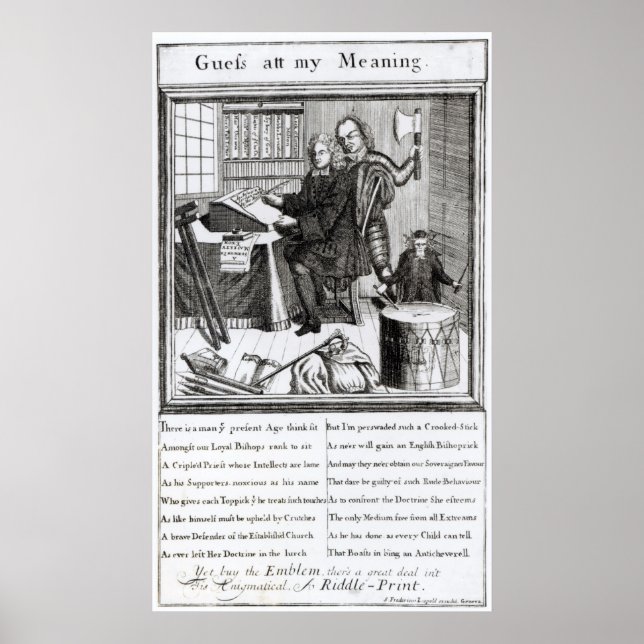 Gueſs att my Meaning.
There is a man yͤ preſent Age think fit
Amongſt our Loyal Biſhops rank to sit
A Cripled Prieſt whoſe Intellects are lame
As his Supporters, noxcious as his name
Who gives each Toppick yͭ he treats ſuch touches
As like himſelf muſt be upheld by Crutches
A brave Defender of the Eſtabliſhd Church
As ever left Her Doctrine in the lurch
But I'm perswaded such a Crooked-Stick
As ne'er will gain an Engliſh Biſhoprick
And may they ne'er obtain our Soveraignes Favour
That dare be guilty of such Rude Behaviour
As to confront the Doctrine She eſteems
The only Medium free from all Extreams
As he has done as every Child can tell,
That Boaſts in b'ing an Anticheverell.
Yet buy the Emblem, ther's a great deal in't
Tis Ænigmatical, A Riddle-Print.
Geneva.